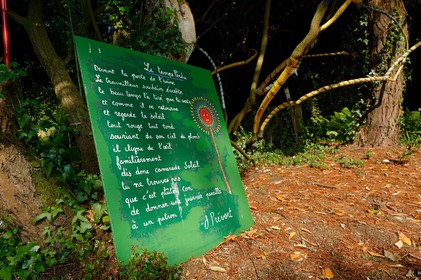 Le temps Perdu
Devant la porte de l'usine
le travailleur soudain s'arrête
le beau temps l'a tiré par la veste
et comme il se retourne
et regarde le soleil
tout rouge tout rond
souriant de son ciel de plomb
il cligne de l'œil
familièrement
dis donc camarade Soleil
tu ne trouves pas
que c'est plutôt con
de donner une journée pareille
à un patron
J Prévert